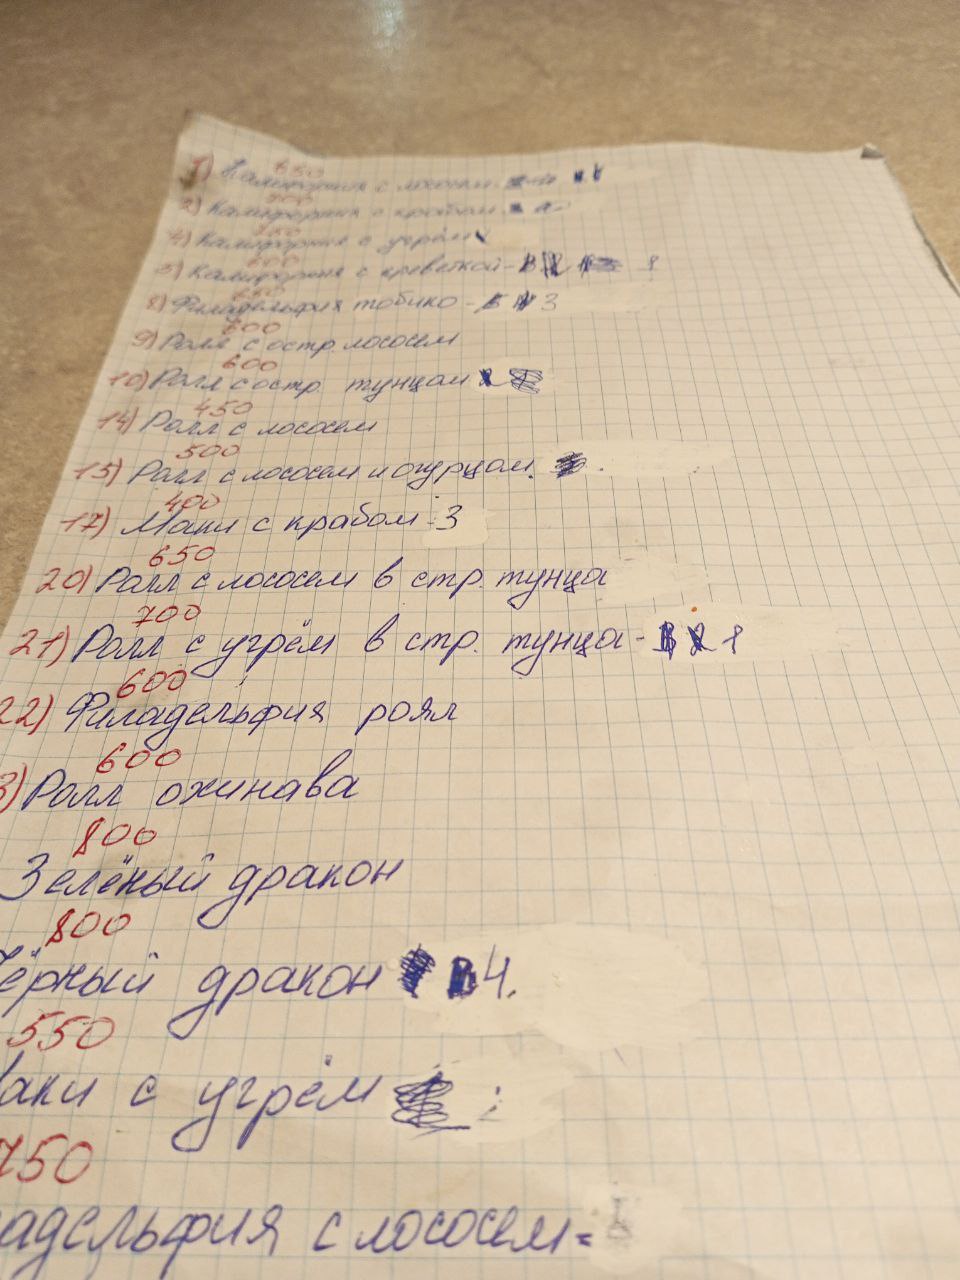 650
1) Калифорния с лососем
2) Калифорния с крабом
4) Калифорния с угрём
600
5) Калифорния с креветкой -
8) Филадельфия тобико - 3
600
9) Ролл с остр. лососем
600
10) Ролл с остр. тунцом
450
14) Ролл с лососем
500
15) Ролл с лососем и огурцом.
400
17) Маки с крабом - 3
650
20) Ролл с лососем в стр. тунца
700
21) Ролл с угрём в стр. тунца - 1
600
22) Филадельфия роял
600
3) Ролл окинава
800
Зелёный дракон
800
Чёрный дракон 4.
550
аки с угрём
750
адельфия с лососем =